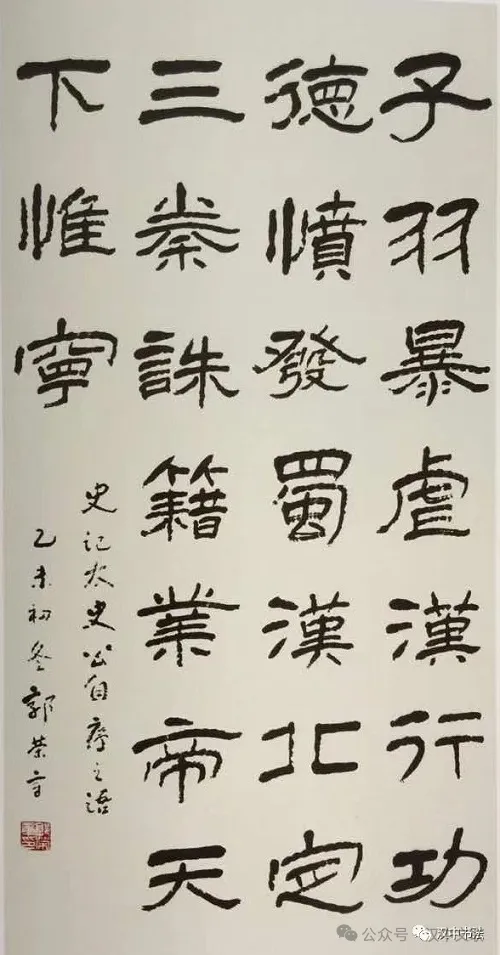 子羽暴虐漢行功
德憤發蜀漢北定
三秦誅籍業帝天
下惟寧
史記太史公自序之語
乙未初冬郭榮章
公众号·
汉中书法